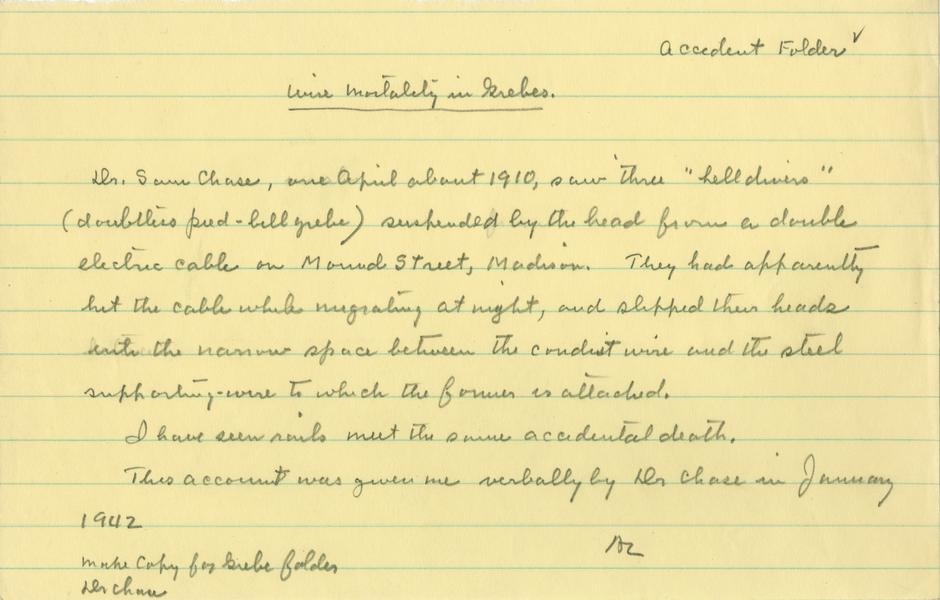 Accedent Folder ✓
Wire Mortality in Grebes.
Dr. Sam Chase, one April about 1910, saw three "helldivers"
(doubtless pied-bill grebe) suspended by the head from a double
electric cable on Mound Street, Madison. They had apparently
hit the cable while migrating at night, and slipped their heads
into the narrow space between the conduit wire and the steel
supporting-wire to which the former is attached.
I have seen rails meet the same accidental death.
This account was given me verbally by Dr Chase in January
1942
AL
Make Copy for Grebe folder
Dr Chase